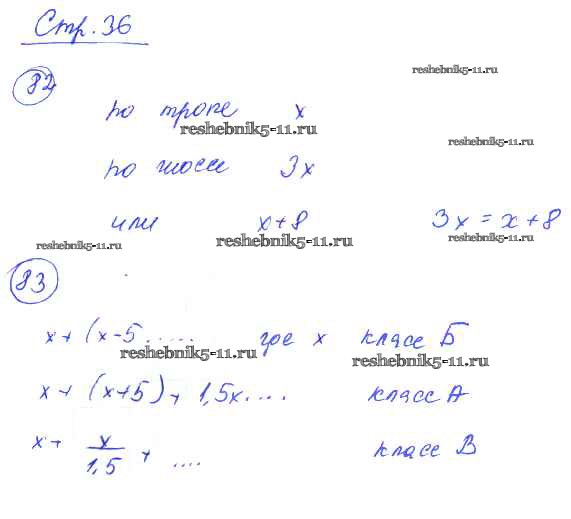 Стр. 36
82
reshebnik5-11.ru
по тропе x
reshebnik5-11.ru
reshebnik5-11.ru
по шоссе 3x
или x+8 3x = x+8
reshebnik5-11.ru reshebnik5-11.ru reshebnik5-11.ru
83
x + (x-5 ..... где x класс Б
reshebnik5-11.ru reshebnik5-11.ru
x + (x+5) + 1,5x.... класс А
x + x/1,5 + .... класс В